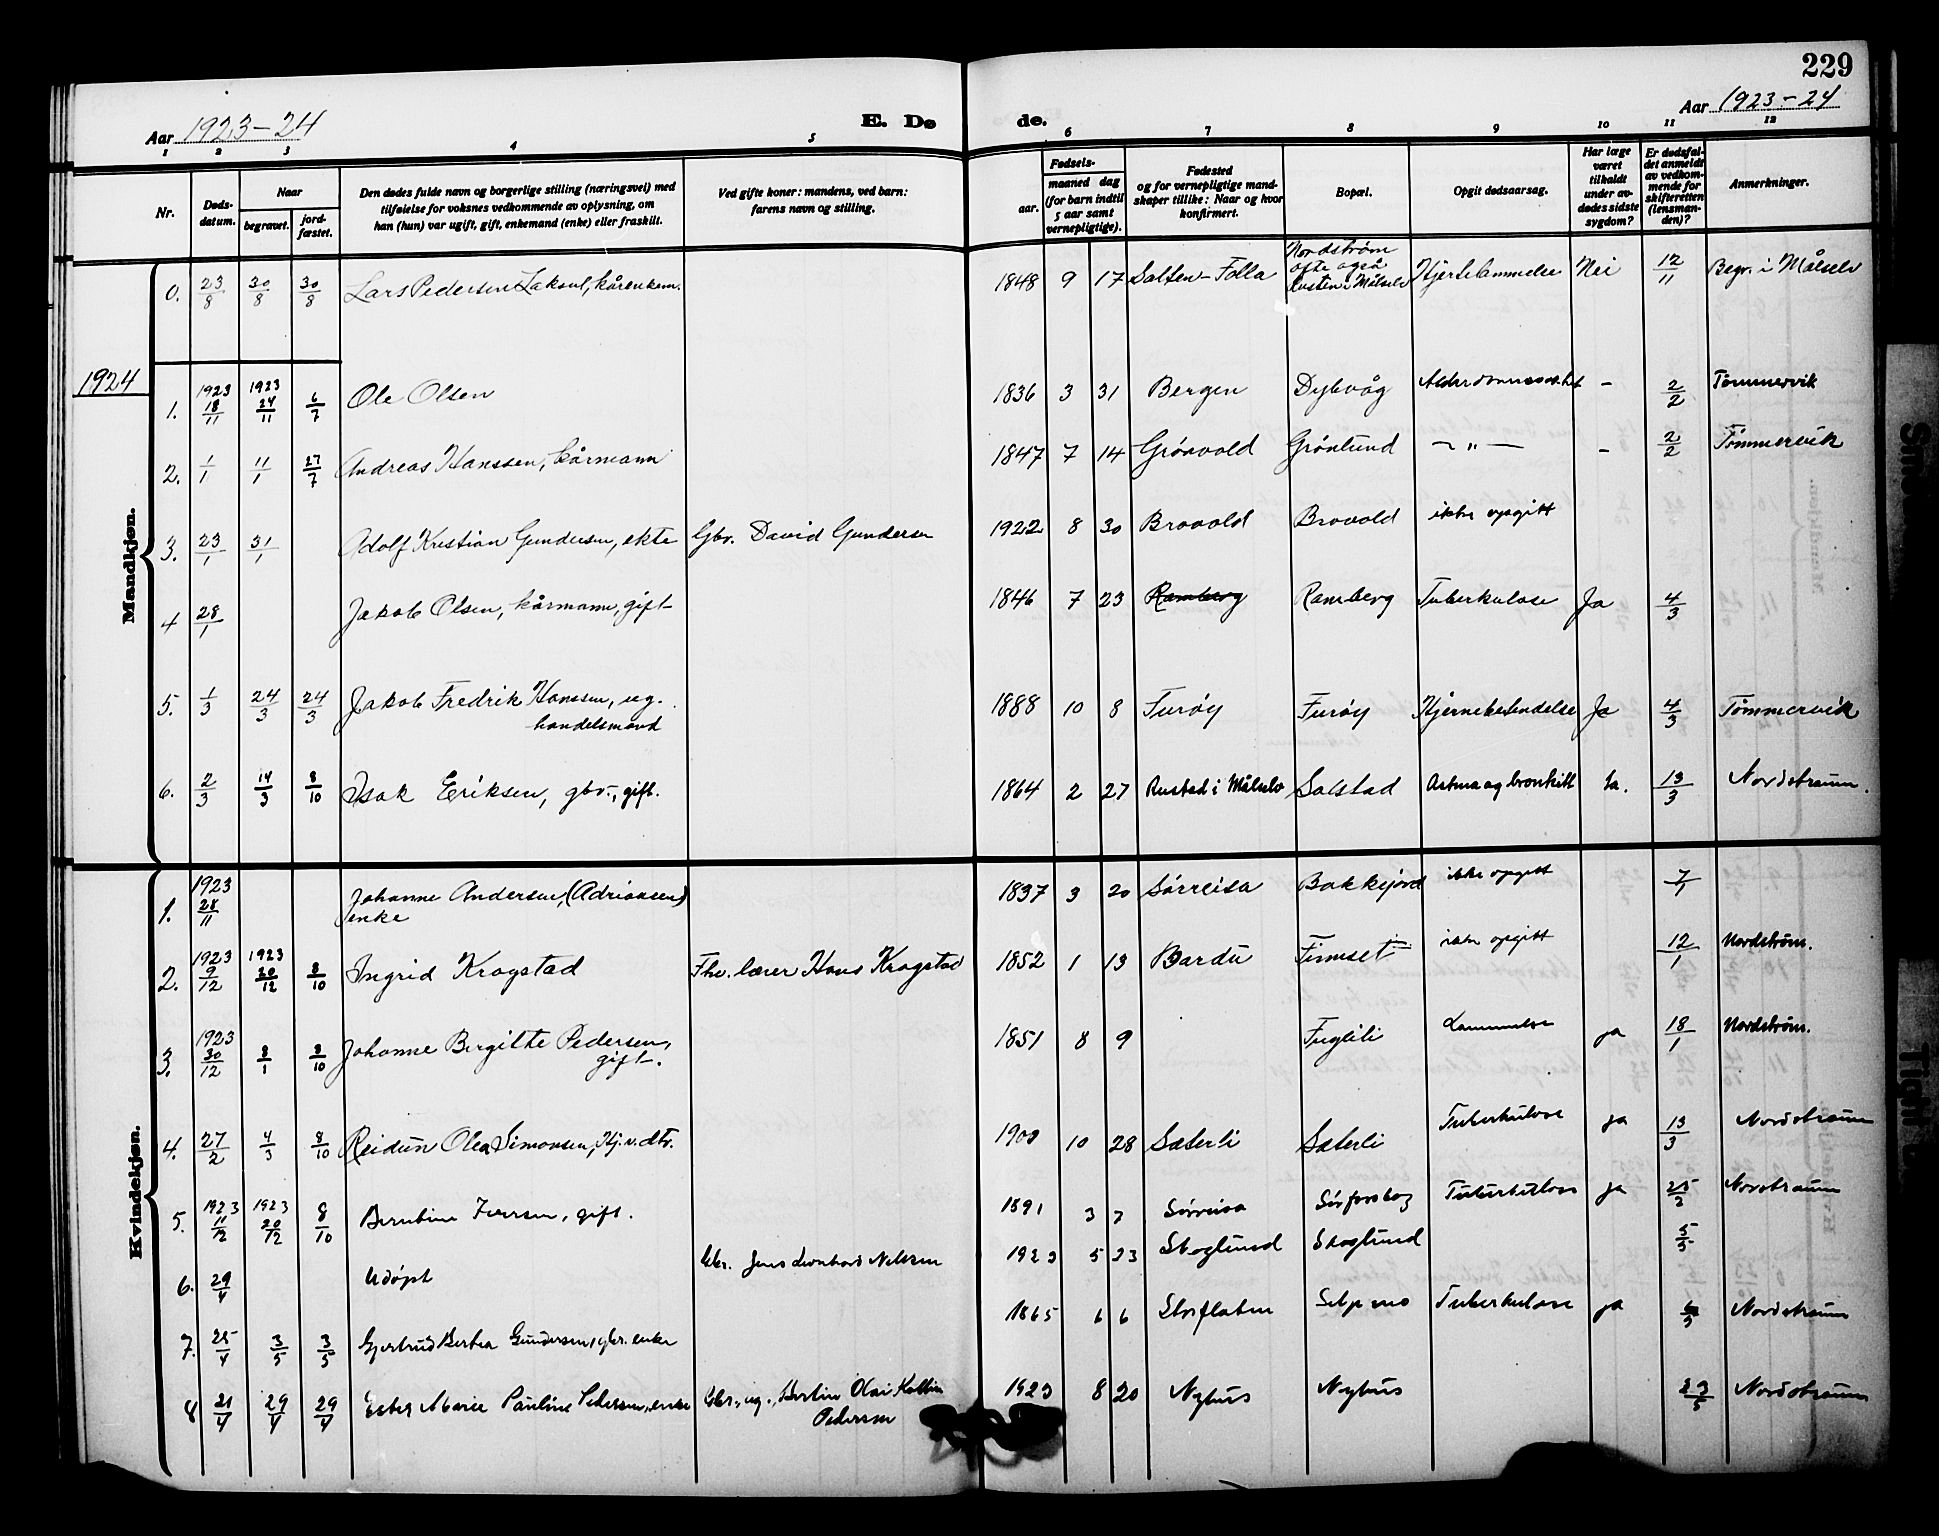 229
Aar 1923-24
E. Dø
de.
Aar 1923-24
1 2 3 4 5 6 7 8 9 10 11 12
Nr.
Døds-
datum.
Naar
begravet.
jord-
fæstet.
Den dødes fulde navn og borgerlige stilling (næringsvei) med
tilføielse for voksnes vedkommende av oplysning, om
han (hun) var ugift, gift, enkemand (enke) eller fraskilt.
Ved gifte koner: mandens, ved barn:
farens navn og stilling.
Fødsels-
aar.
maaned dag
(for barn indtil
5 aar samt
vernepligtige).
Fødested
og for vernepligtige mand-
skaper tillike: Naar og hvor
konfirmert.
Bopæl.
Opgit dødsaarsag.
Har læge
været
tilkaldt
under av-
dødes sidste
sygdom?
Er dødsfal-
det anmeldt
av vedkom-
mende for
skifteretten
(lensman-
den)?
Anmerkninger.
Mandkjøn.
0. 23/8 30/8 30/8 Lars Pedersen 1848 9 17 Salten-Folla Nordstrøm
ofte også
i Målselv
Hjertelammelse Nei 12/11 Begr. i Målselv
1924
1. 1923 18/11 1923 24/11 6/7 Ole Olsen 1836 3 31 Bergen Dybvåg - 2/2 Tømmervik
2. 1/1 11/1 27/7 Andreas Hanssen, kårmann 1847 7 14 Grönvold Grönlund - " - - 2/2 Tømmervik
3. 23/1 31/1 Adolf Kristian Gundersen, ekte Gbr. David Gundersen 1922 8 30 Brovold Brovold ikke opgitt
4 28/1 Jakob Olsen, kårmann, gift 1846 7 23 Ramberg Ramberg Tuberkulose Ja 4/3
5. 1/3 24/3 24/3 Jakob Fredrik Hanssen, ug.
handelsmand
1888 10 8 Furöy Furöy Hjernebetendelse Ja 4/3 Tømmervik
6. 2/3 14/3 8/10 Isak Eriksen, gbr., gift. 1864 2 27 Rustad i Målselv Solstad Astma og bronkitt Ja. 13/3 Nordstraum.
Kvindekjøn.
1. 1923 28/11 Johanne Andersen, (Adriansen)
enke
1837 3 20 Sörreisa Bakkejord ikke opgitt 7/1
2. 1923 9/12 1923 20/12 8/10 Ingrid Krogstad Fhv. lærer Hans Krogstad 1852 1 13 Bardu Finnset ikke opgitt 12/1 Nordstrøm.
3. 1923 30/12 8/1 8/10 Johanne Birgitte Pedersen,
gift.
1851 8 9 Fuglili Lammelse ja 18/1 Nordstrøm.
4. 27/2 4/3 8/10 Reidun Olea Simonsen, 1900 10 28 Sæterli Sæterli Tuberkulose ja 13/3 Nordstraum
5. 1923 11/12 1923 20/12 8/10 Berntine Iversen, gift. 1891 3 7 Sørreisa Tuberkulose ja 25/2 Nordstraum
6. 29/4 Udøpt Gbr. Jens Leonhard Nilssen 1923 5 23 Skoglund Skoglund 5/5
7. 25/4 3/5 3/5 Gjertrud Berbea Gundersen, gbr. enke 1865 6 6 Storflaten Seljemo Tuberkulose ja 6/5 Nordstraum
8 21/4 29/4 29/4 Ester Marie Pauline Pedersen, Gbr., ug.,
Pedersen
1923 8 20 Nyhus Nyhus 23/5 Nordstraum